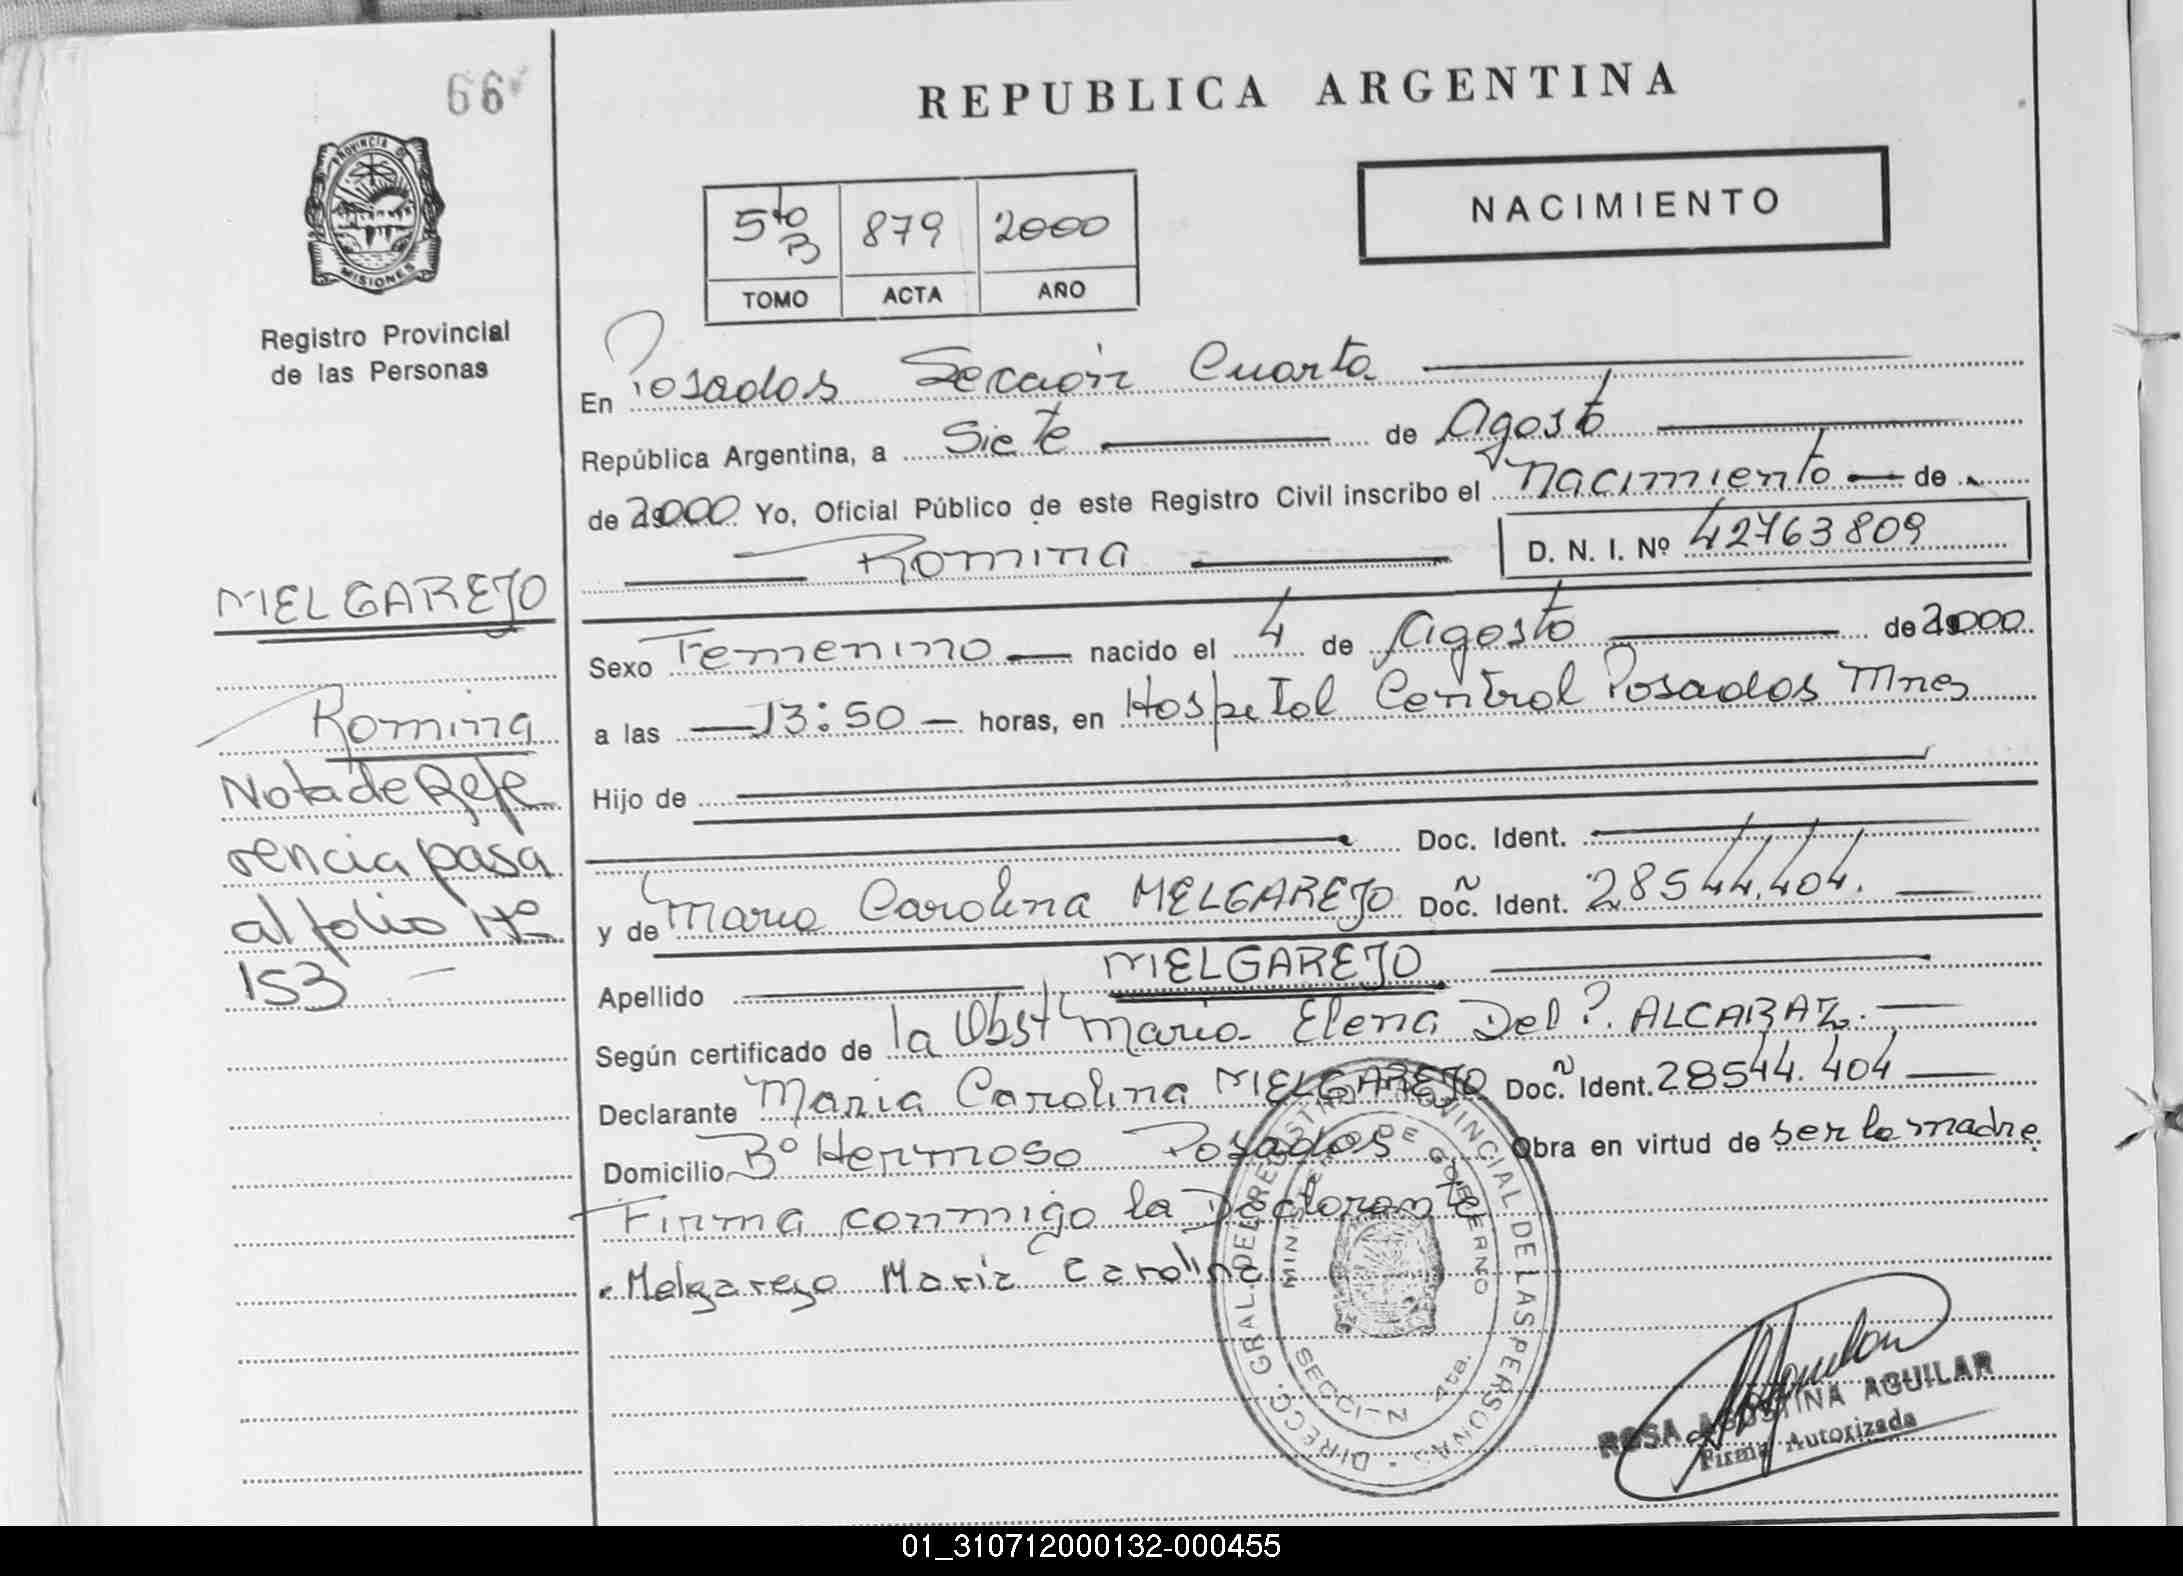 66
REPUBLICA ARGENTINA
PROVINCIA DE
MISIONES
Registro Provincial
de las Personas
5to B 879 2000
TOMO ACTA AÑO
NACIMIENTO
En Posadas Sección Cuarta
República Argentina, a Siete de Agosto
de 2000 Yo, Oficial Público de este Registro Civil inscribo el Nacimiento de
Romina D. N. I. Nº 42763809
Sexo Femenino nacido el 4 de Agosto de 2000
a las 13:50 horas, en Hospital Central Posadas Mnes
Hijo de
Doc. Ident.
y de Maria Carolina MELGAREJO Doc. Ñ Ident. 28544.404.
Apellido MELGAREJO
Según certificado de la Obst Maria Elena Del P. ALCARAZ.
Declarante Maria Carolina MELGAREJO Doc. Ñ Ident. 28544.404
Domicilio Bº Hermoso Posadas Obra en virtud de ser la madre
Firma conmigo la Declarante
Melgarejo Maria Carolina
MELGAREJO
Romina
Nota de Refe
rencia pasa
al folio Nº
153
DIRECC. GRAL. DEL REGISTRO PROVINCIAL DE LAS PERSONAS
MINISTERIO DE GOBIERNO
SECCION 4ta.
ROSA AGOSTINA AGUILAR
Firma Autorizada
01_310712000132-000455